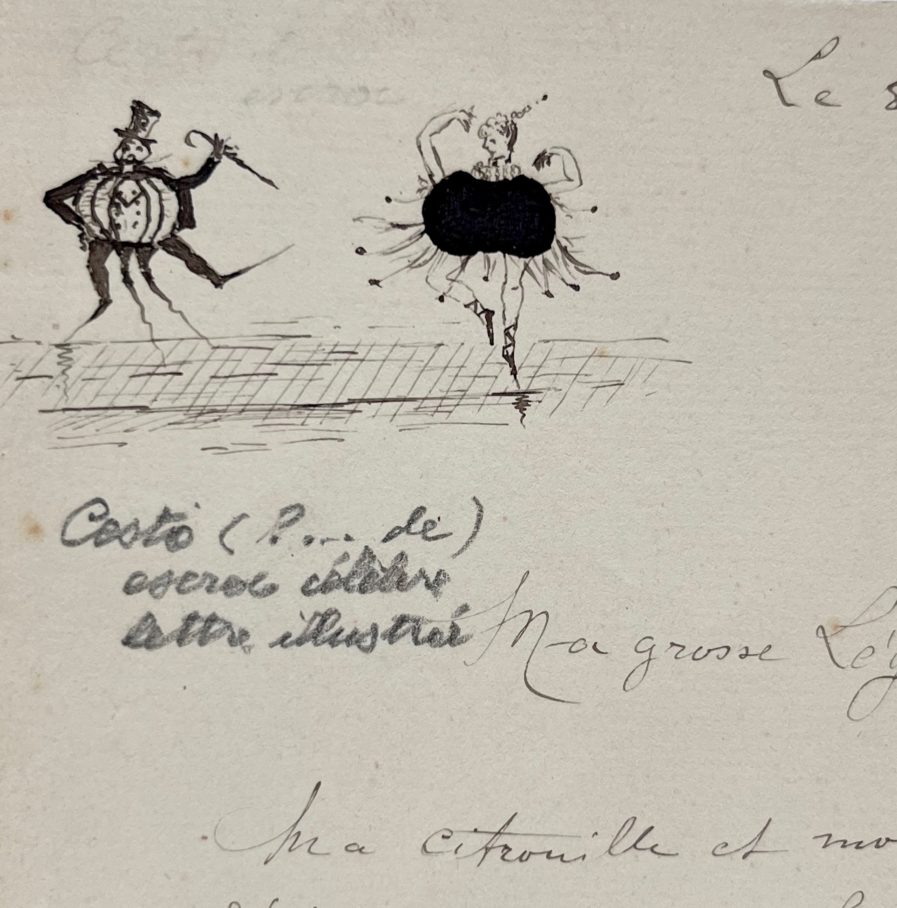 Le
Costa (?... de)
escroc célèbre
lettre illustrée
Ma grosse
Ma citrouille et